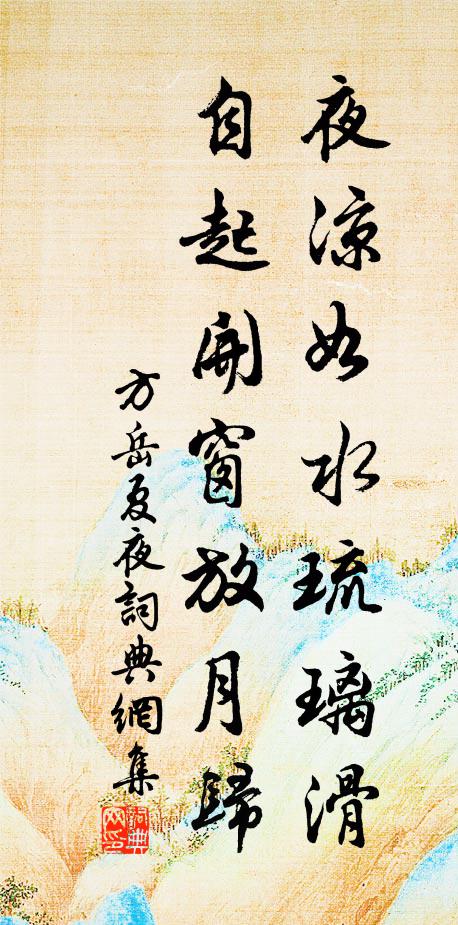 夜涼如水琉璃滑
自起開窗放月歸
方岳夏夜詞典網集
詞典
网印